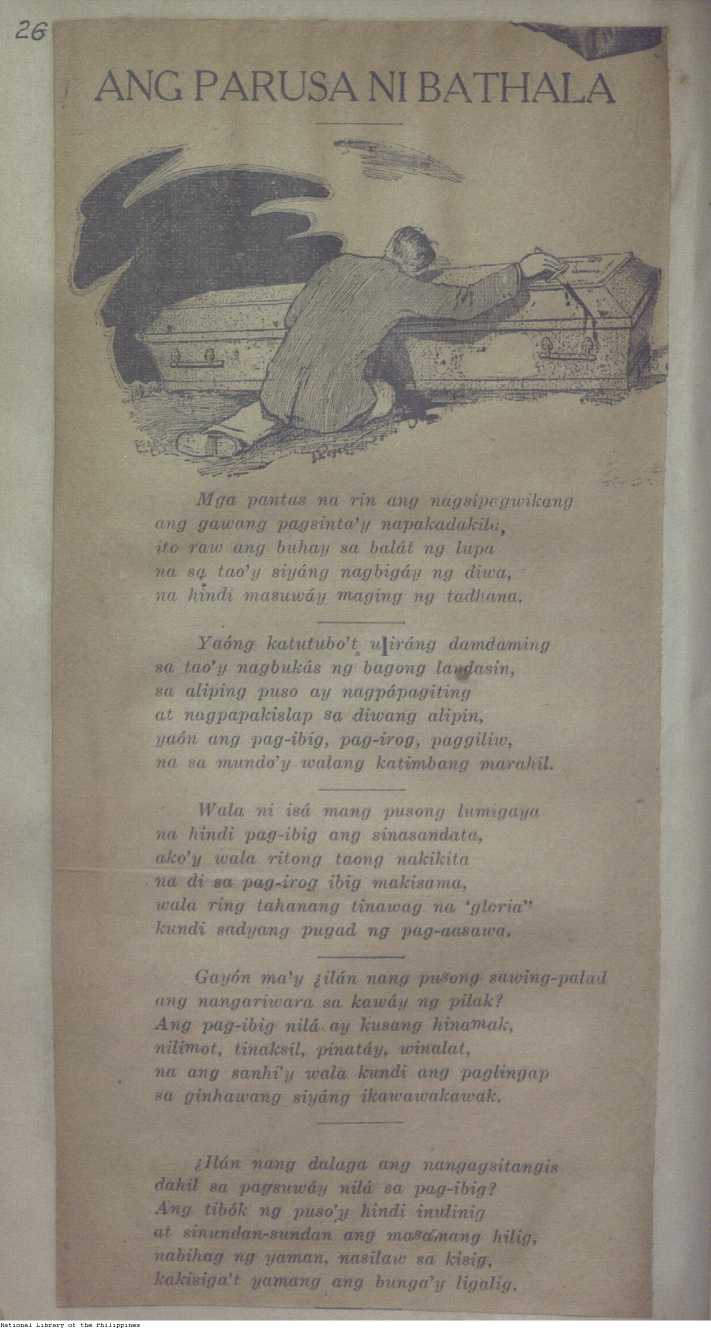 26
ANG PARUSA NI BATHALA
Mga pantas na rin ang nagsipagwikang
ang gawang pagsinta'y napakadakila,
ito raw ang buhay sa balát ng lupa
na sa tao'y siyáng nagbigáy ng diwa,
na hindi masuwáy maging ng tadhana.
Yaóng katutubo't uliráng damdaming
sa tao'y nagbukás ng bagong landasin,
sa aliping puso ay nagpápagiting
at nagpapakislap sa diwang alipin,
yaón ang pag-ibig, pag-irog, paggiliw,
na sa mundo'y walang katimbang marahil.
Wala ni isá mang pusong lumigaya
na hindi pag-ibig ang sinasandata,
ako'y wala ritong taong nakikita
na di sa pag-irog ibig makisama,
wala ring tahanang tinawag na 'gloria"
kundi sadyang pugad ng pag-aasawa.
Gayón ma'y ¿ilán nang pusong sawing-palad
ang nangariwara sa kawáy ng pilak?
Ang pag-ibig nilá ay kusang hinamak,
nilimot, tinaksil, pinatáy, winalat,
na ang sanhi'y wala kundi ang paglingap
sa ginhawang siyáng ikawawakawak.
¿Ilán nang dalaga ang nangagsitangis
dahil sa pagsuwáy nilá sa pag-ibig?
Ang tibók ng puso'y hindi inulinig
at sinundan-sundan ang masamang hilig,
nabihag ng yaman, nasilaw sa kisig,
kakisiga't yamang ang bunga'y ligalig.
National Library of the Philippines